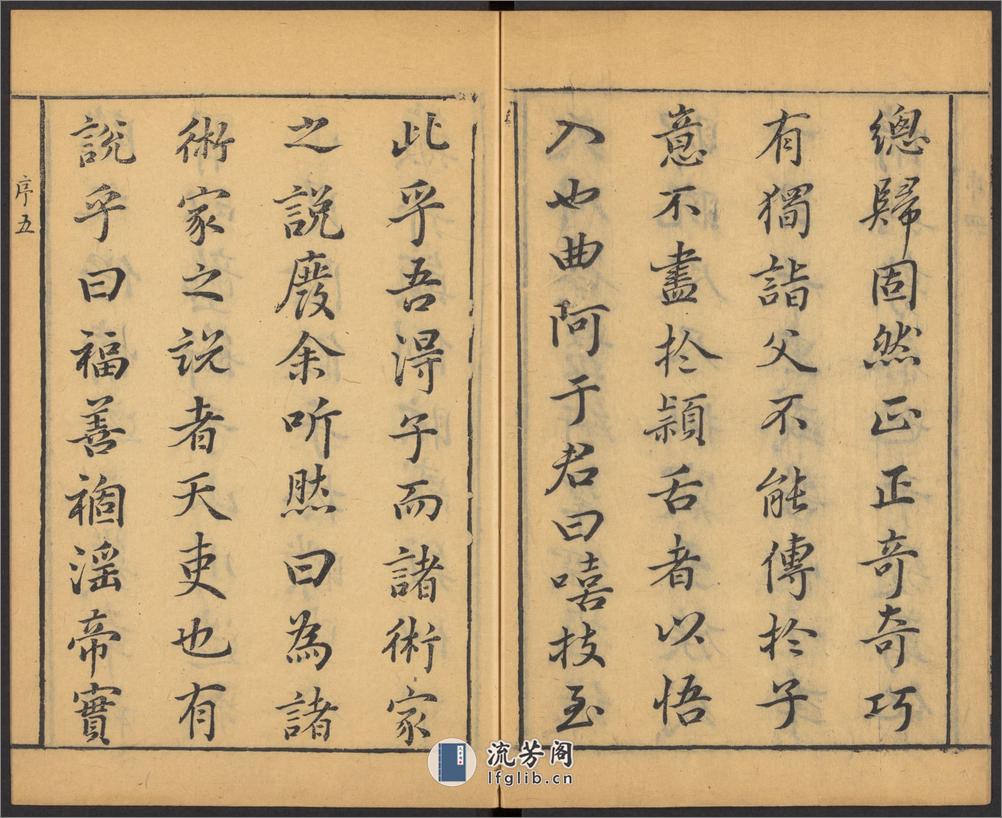 總歸固然正正奇奇巧
有獨詣父不能傳於子
意不盡於穎舌者以悟
入也曲阿于君曰嘻技至
此乎吾得子而諸術家
之說廢余听然曰為諸
術家之説者天吏也有
說乎曰福善禍淫帝實
序五
流芳阁
lfglib.cn